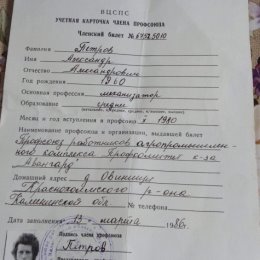 ВЦСПС
УЧЕТНАЯ КАРТОЧКА ЧЛЕНА ПРОФСОЮЗА
Членский билет №
Фамилия Петров
Имя Александр
Отчество Александрович
Год рождения 1960
Основная профессия механизатор
Образование средне
Месяц и год вступления в профсоюз X 1980
Наименование профсоюза и организации, выдавшей билет
Профсоюз работников агропромышлен-
ного комплекса Профсоюзный к-за
"Авангард"
Домашний адрес д Овинище
Краснохолмского р-она
Калининской обл № телефона
Дата заполнения 13 марта 1986 г.
Подпись члена профсоюза
Петров